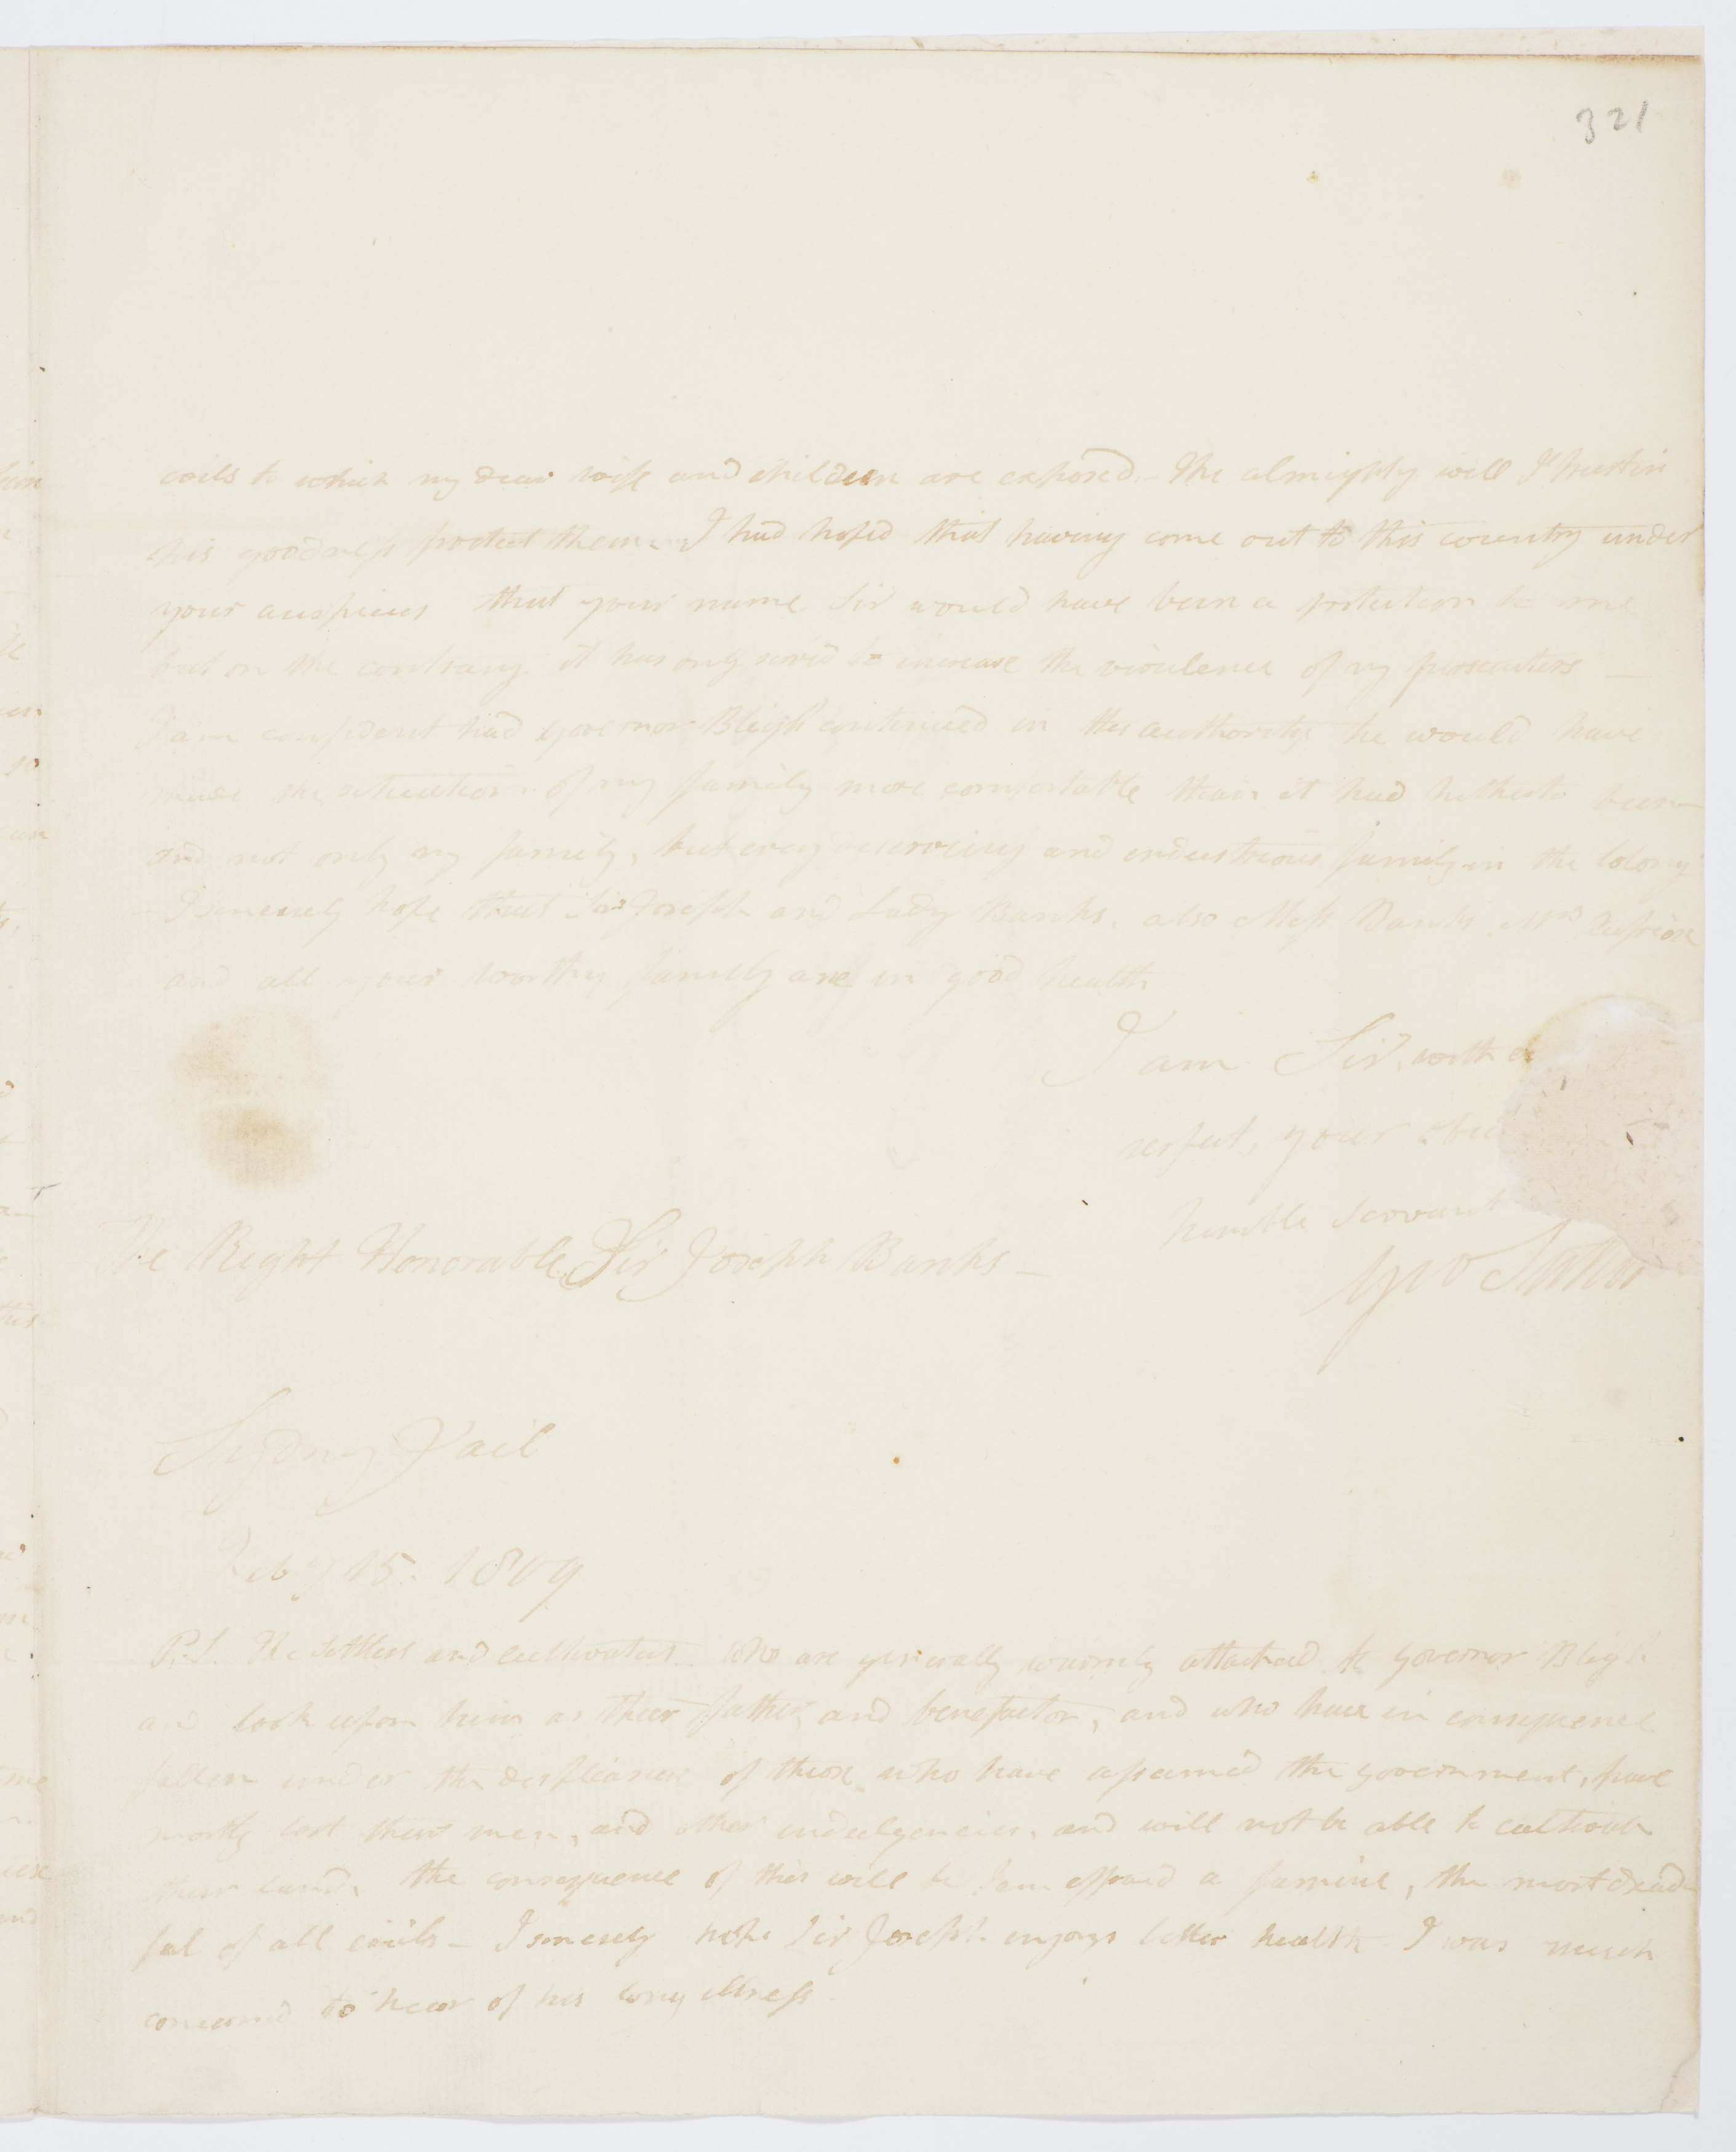 321
evils to which my dear wife and children are exposed. - The almighty will I trust in
his goodness protect them. - I had hoped that having come out to this country under
your auspices that your name Sir would have been a protection to me
but on the contrary it has only served to increase the virulence of my prosecutors -
I am confident had governor Bligh continued in his authority he would have
made the situation of my family more comfortable than it had hitherto been
and not only my family, but every deserving and industrious family in the Colony
- I sincerely hope that Sir Joseph and Lady Banks, also Miss Banks Mrs
and all your worthy family are in good health
I am Sir, with
respect, your
humble Servant
The Right Honorable Sir Joseph Banks -
Geo Suttor
Sydney Jail
Feby 15. 1809
P.S. The settlers and cultivators who are generally warmly attached to governor Bligh
and look upon him as their father, and benefactor, and who have in consequence
fallen under the displeasure of those who have assumed the government, have
mostly lost their men, and other indulgencies, and will not be able to cultivate
their land, the consequence of this will be I am affraid a famine, the most dread
ful of all evils - I sincerely hope Sir Joseph enjoys better health I was much
concerned to hear of his long illness.